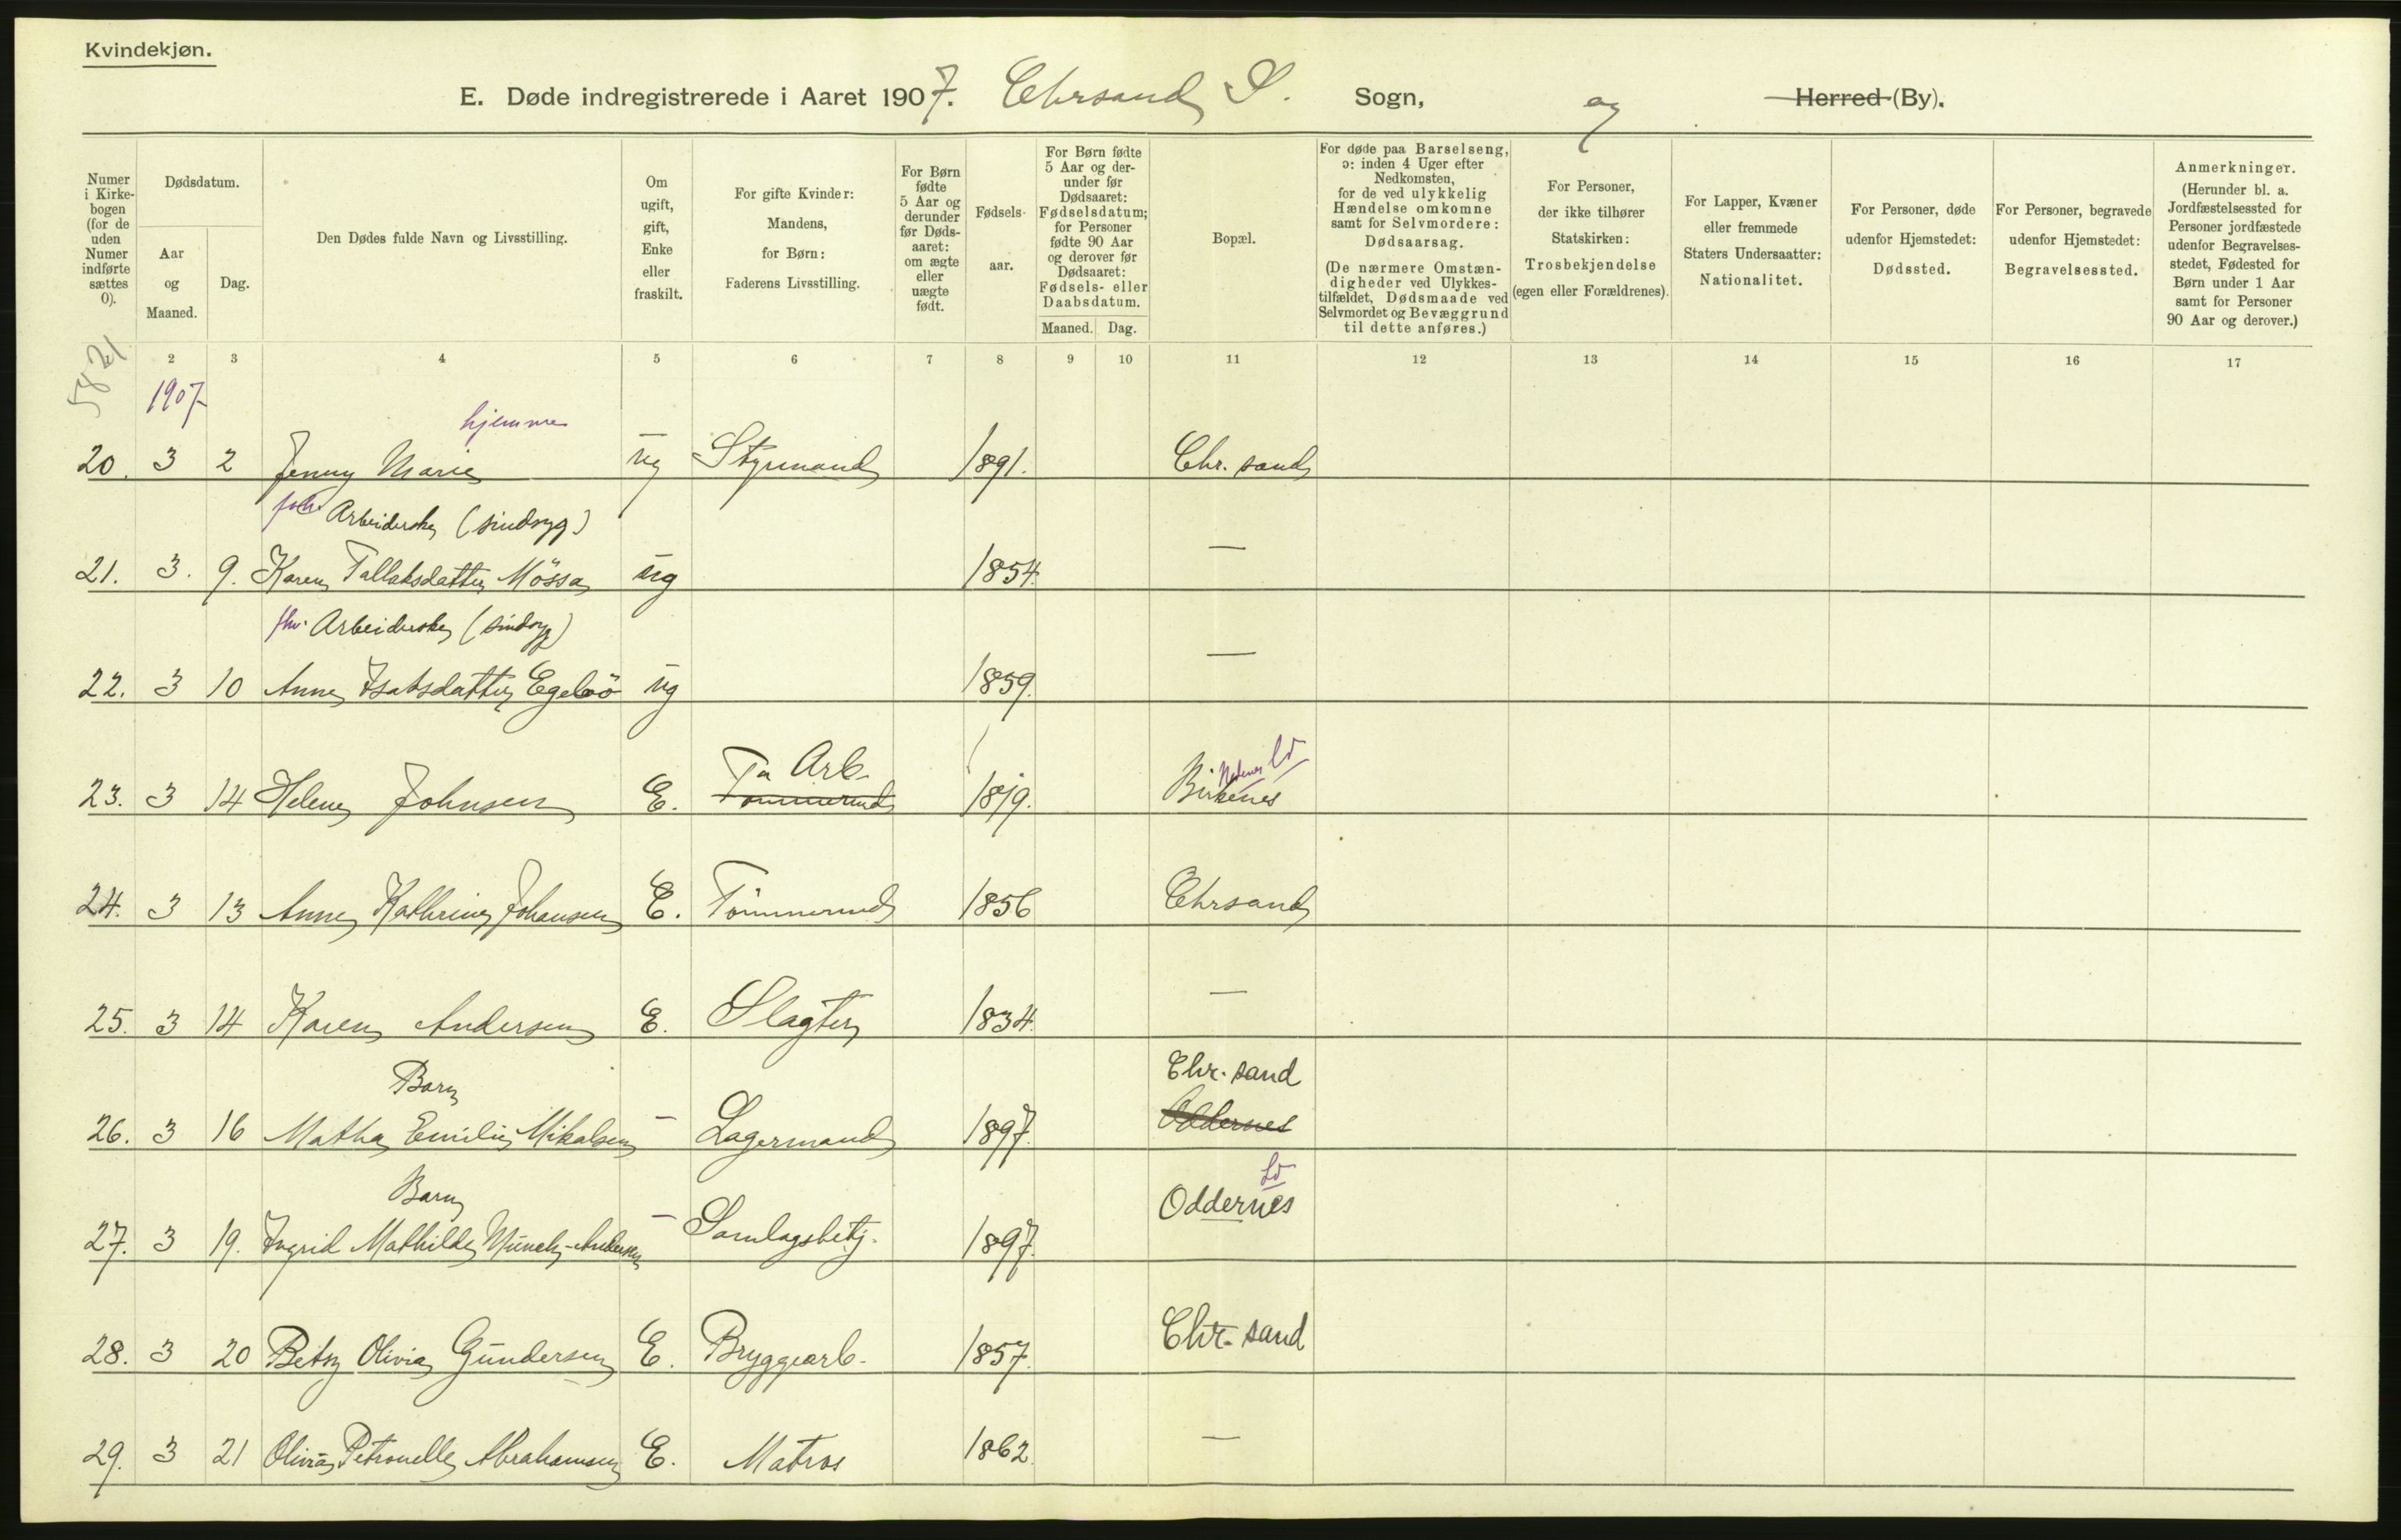 Kvindekjøn.
E. Døde indregistrerede i Aaret 1907. Chrsand S. Sogn, og Herred (By).
Numer i Kirkebogen (for de uden Numer indførte sættes 0).
Dødsdatum.
Aar og Maaned.
Dag.
Den Dødes fulde Navn og Livsstilling.
Om ugift, gift, Enke eller fraskilt.
For gifte Kvinder: Mandens, for Børn: Faderens Livsstilling.
For Børn fødte 5 Aar og derunder før Dødsaaret: om ægte eller uægte født.
Fødselsaar.
For Børn fødte 5 Aar og derunder før Dødsaaret: Fødselsdatum; for Personer fødte 90 Aar og derover før Dødsaaret: Fødsels- eller Daabsdatum.
Maaned. Dag.
Bopæl.
For døde paa Barselseng, ɔ: inden 4 Uger efter Nedkomsten, for de ved ulykkelig Hændelse omkomne samt for Selvmordere: Dødsaarsag. (De nærmere Omstændigheder ved Ulykkestilfældet, Dødsmaade ved Selvmordet og Bevæggrund til dette anføres.)
For Personer, der ikke tilhører Statskirken: Trosbekjendelse (egen eller Forældrenes).
For Lapper, Kvæner eller fremmede Staters Undersaatter: Nationalitet.
For Personer, døde udenfor Hjemstedet: Dødssted.
For Personer, begravede udenfor Hjemstedet: Begravelsessted.
Anmerkninger. (Herunder bl. a. Jordfæstelsessted for Personer jordfæstede udenfor Begravelsesstedet, Fødested for Børn under 1 Aar samt for Personer 90 Aar og derover.)
5821
2 3 4 5 6 7 8 9 10 11 12 13 14 15 16 17
1907
hjemme
20. 3 2 Jenny Marie ug Styrmand 1891. Chr. sand
fhv Arbeiderske (sindsyg)
21. 3. 9. Karen Tallaksdatter Mössa ug 1854. —
fhv. Arbeiderske (sindsyg)
22. 3 10 Anne Isaksdatter Egebö ug 1859. —
Arb. Nedenes Ld
23. 3 14 Helene Johnsen E. Tømmermd 1819. Birkenes
24. 3 13 Anne Kathrine Johansen E. Tömmermd 1856 Chrsand
25. 3 14 Karen Andersen E. Slagter 1834. —
Barn Chr. sand
26. 3 16 Matha Emilie Mikalsen — Lagermand 1897. Oddernes
Barn Ld
27. 3 19. Ingrid Mathilde Münch-Andersen — Samlagsbetj. 1897. Oddernes
28. 3 20 Betsy Olivia Gundersen E. Bryggearb. 1857. Chr. sand
29. 3 21 Olivia Petronelle Abrahamsen E. Matros 1862. —